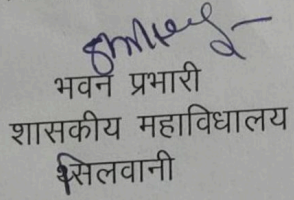 भवन प्रभारी
शासकीय महाविधालय
सिलवानी